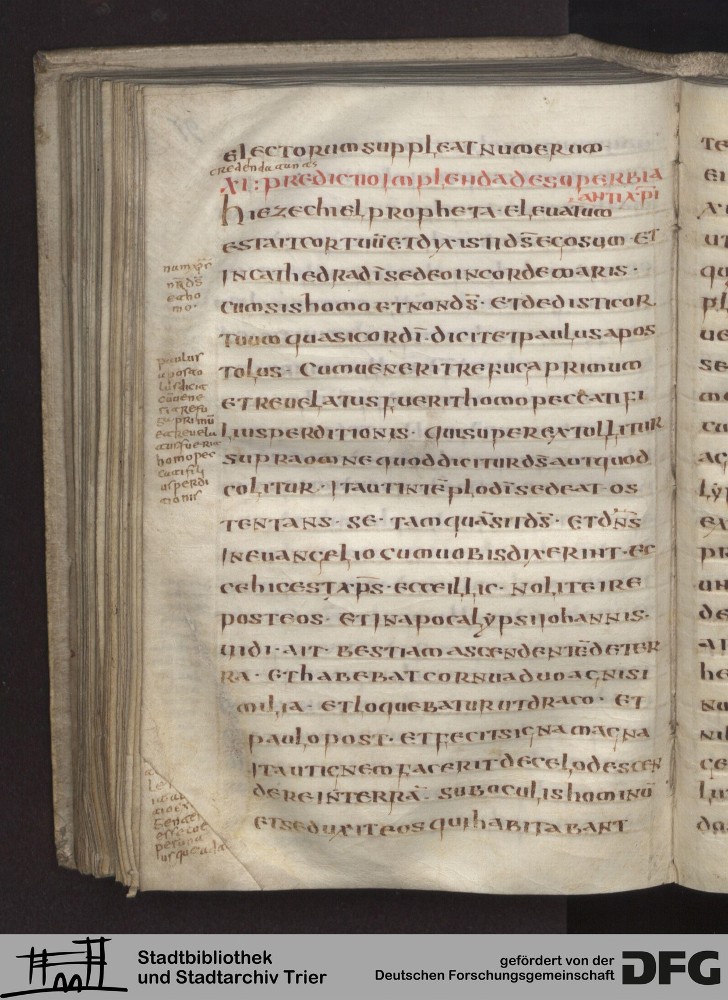 electorum suppleat numerum
credenda
XI: predictio implenda de superbia
Antixpi
hiezechiel propheta. eleuatum
est ait cor tuū et dixisti ds̄ ego sum et
in cathedra dī sedeo in corde maris.
cum sis homo et non ds̄. et dedisti cor
tuum quasi cor dī. dicit et paulus apos
tolus. cum uenerit refuga primum
et reuelatus fuerit homo peccati fi
lius perditionis. qui superextollitur
supra omne quod dicitur ds̄ aut quod
colitur. ita ut in tēplo dī sedeat os
tentans se tamquā sit ds̄. et dn̄s
in euangelio cum uobis dixerint. ec
ce hic est xp̄s. ecce illic. nolite ire
post eos. et in apocalẏpsi iohannis.
uidi. ait. bestiam ascendentē de ter
ra. et habebat cornua duo agni si
milia. et loquebatur ut draco. et
paulo post. et fecit signa magna
ita ut ignem facerit de celo descen
dere in terrā. sub oculis hominū
et seduxit eos qui habitabant
paulus
aposto
lus dicit
cū uene
rit refu
ga primū
et reuela
tus fuerit
homo pec
cati fili
us perdi
tionis
Stadtbibliothek
und Stadtarchiv Trier
gefördert von der
Deutschen Forschungsgemeinschaft
DFG